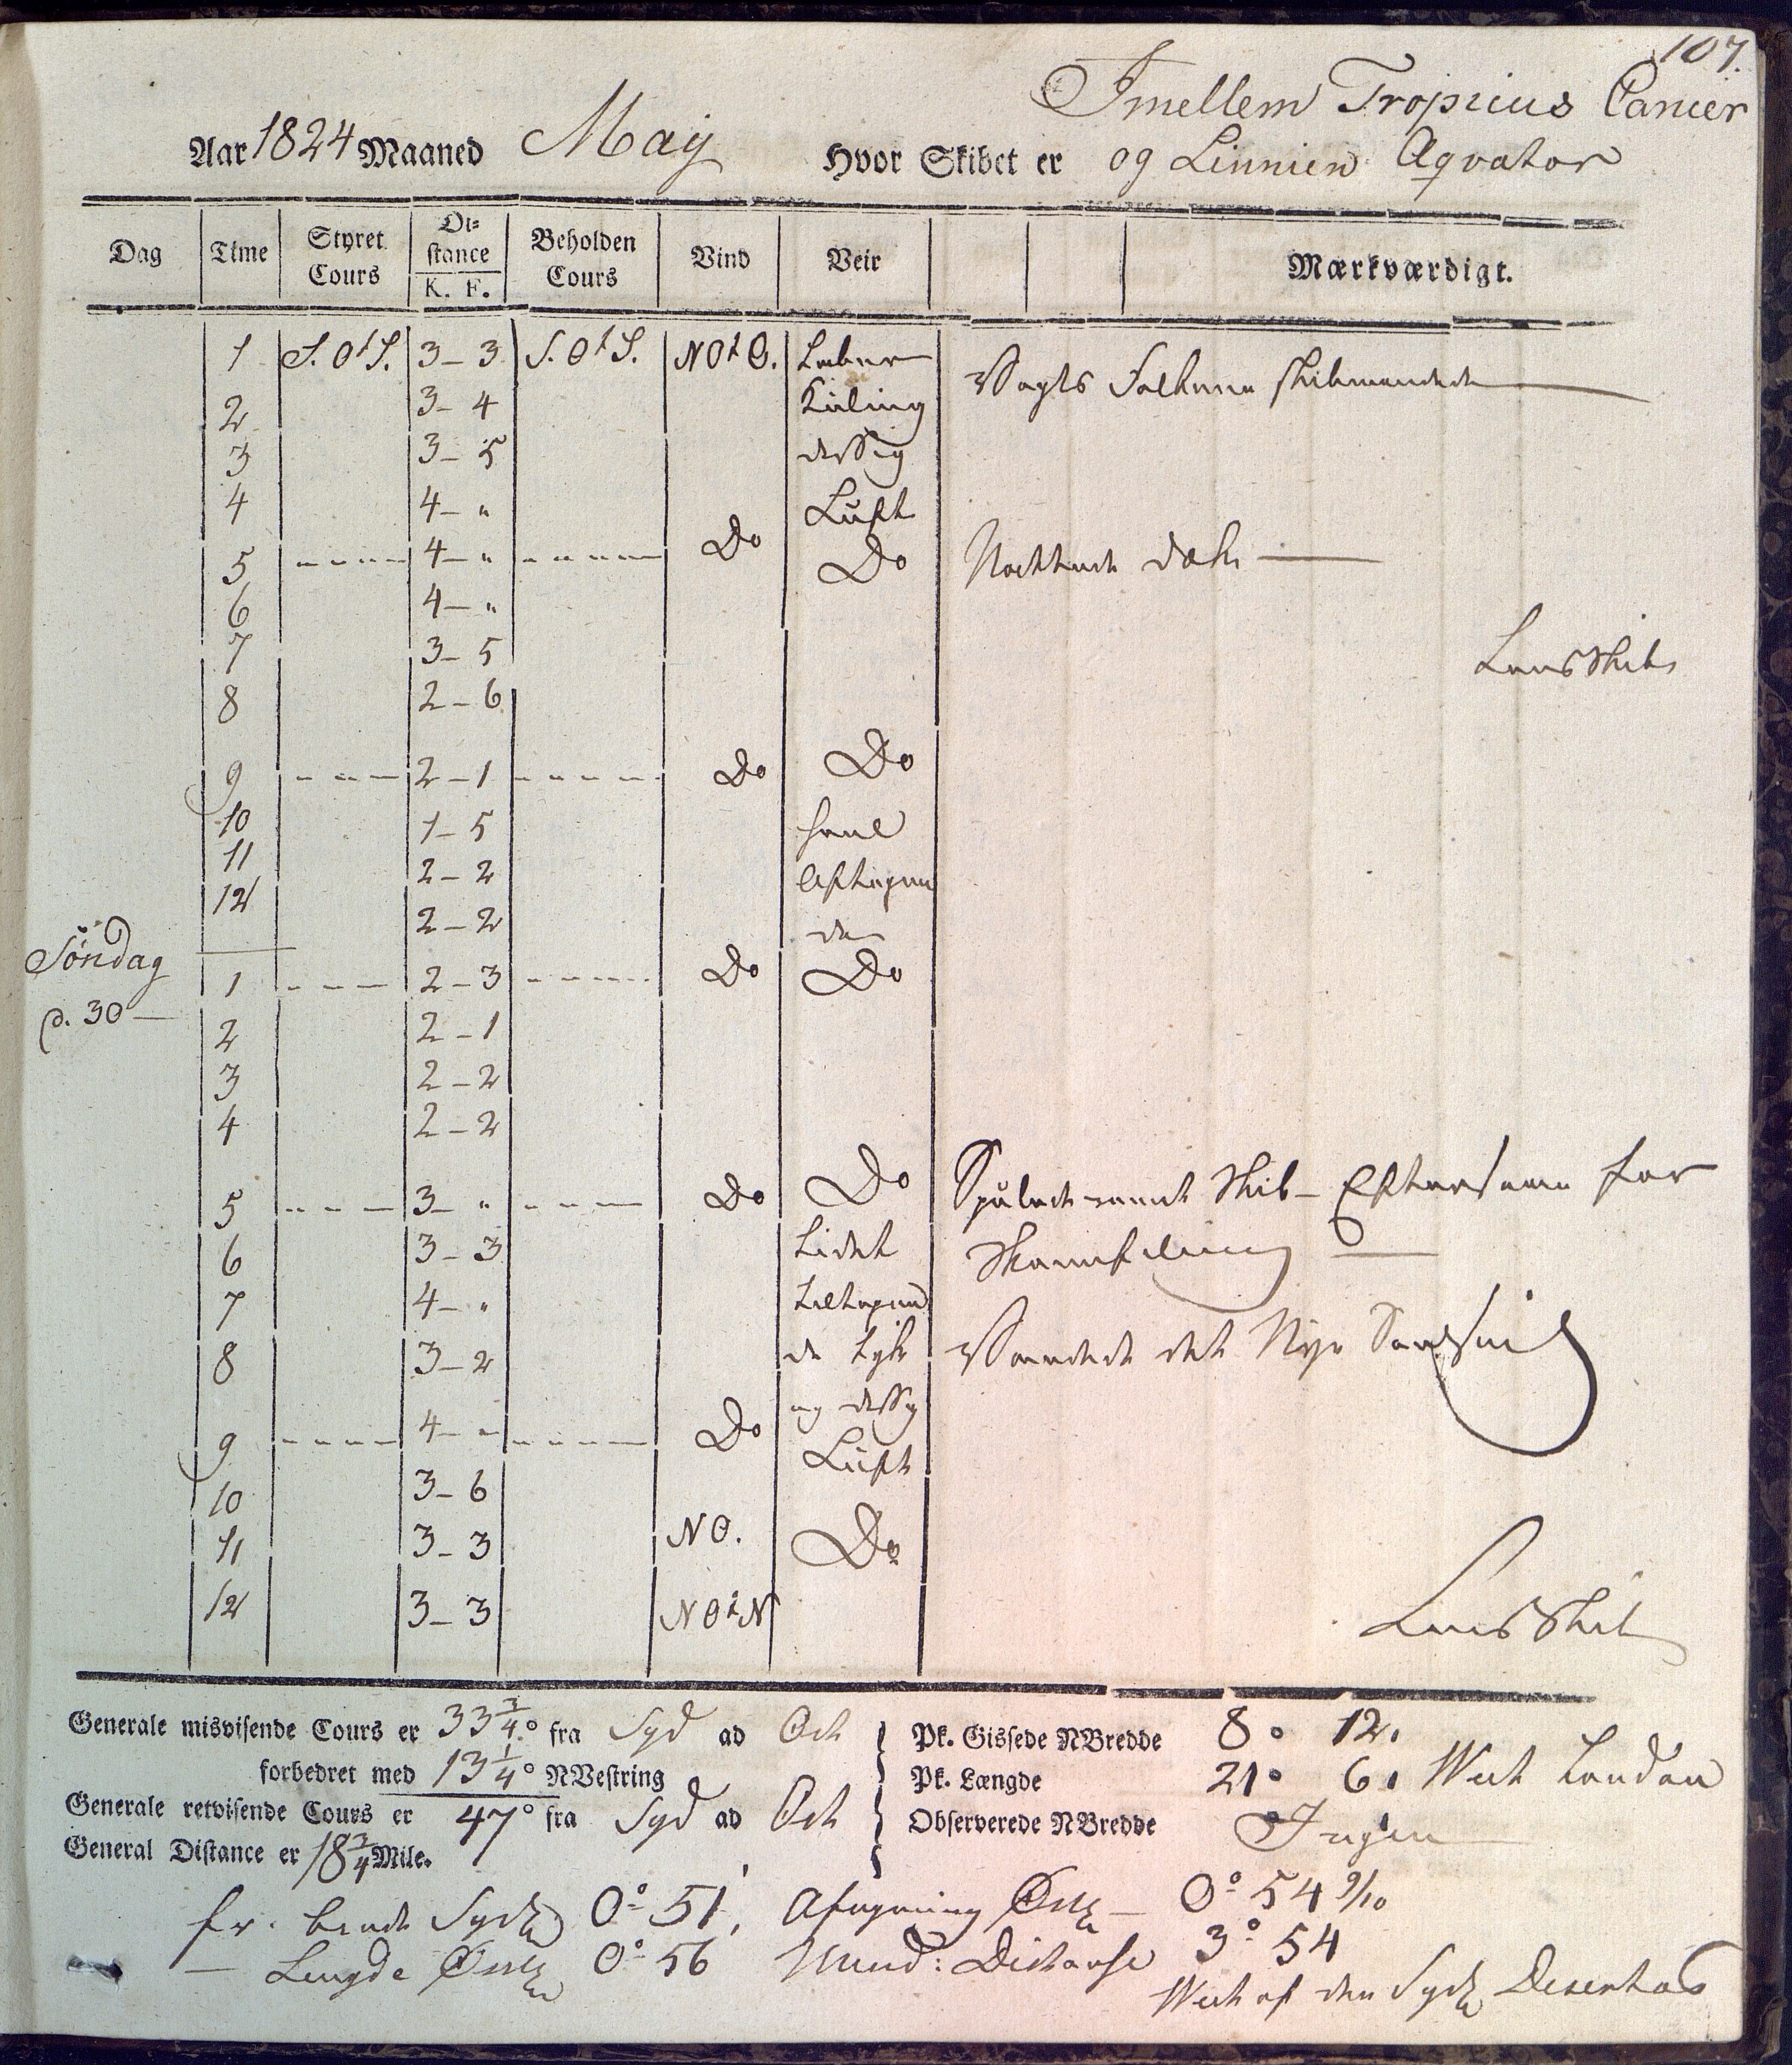 107.
Imellem Tropicus Cancer
Aar 1824 Maaned Maij Hvor Skibet er og Linnien Æqvator
Dag Time Styret Cours Di= stance K. F. Beholden Cours Vind Veir Mærkværdigt.
1 S. O t S. 3 - 3 S. O t S. NO t O. Laber Vagts Folkene skibmandede
2 3 - 4 Kuling
3 3 - 5 dissig
4 4 - " Luft
5 4 - " Do Do Natten do
6 4 - "
7 3 - 5 Lens Skib
8 2 - 6
9 2 - 1 Do Do
10 1 - 5
11 2 - 2 aftagen
12 2 - 2 de
Söndag
1 2 - 3 Do Do
d. 30
2 2 - 1
3 2 - 2
4 2 - 2
5 3 - " Do Do Spülede Skib Eftersaae for
6 3 - 3 Lidet Skamfiling
7 4 - " tiltagen
8 3 - 2 de Vendede det Nye
og dissig
9 4 - " Do Luft
10 3 - 6
11 3 - 3 NO. Do
12 3 - 3 NO t N Lens Skib
Generale misvisende Cours er 33 3/4° fra Syd ad Ost Pk. Gissede NBredde 8° 12'
forbedret med 13 1/4° NVestring Pk. Længde 21° 6' West London
Generale retvisende Cours er 47° fra Syd ad Ost Observerede NBredde Ingen
General Distance er 18 3/4 Mile.
fr. brede Sydl 0° 51' Afvigning Østl 0° 54 9/10
— Lengde Østl 0° 56 Distanse 3° 54
West af den Sydl Desertas